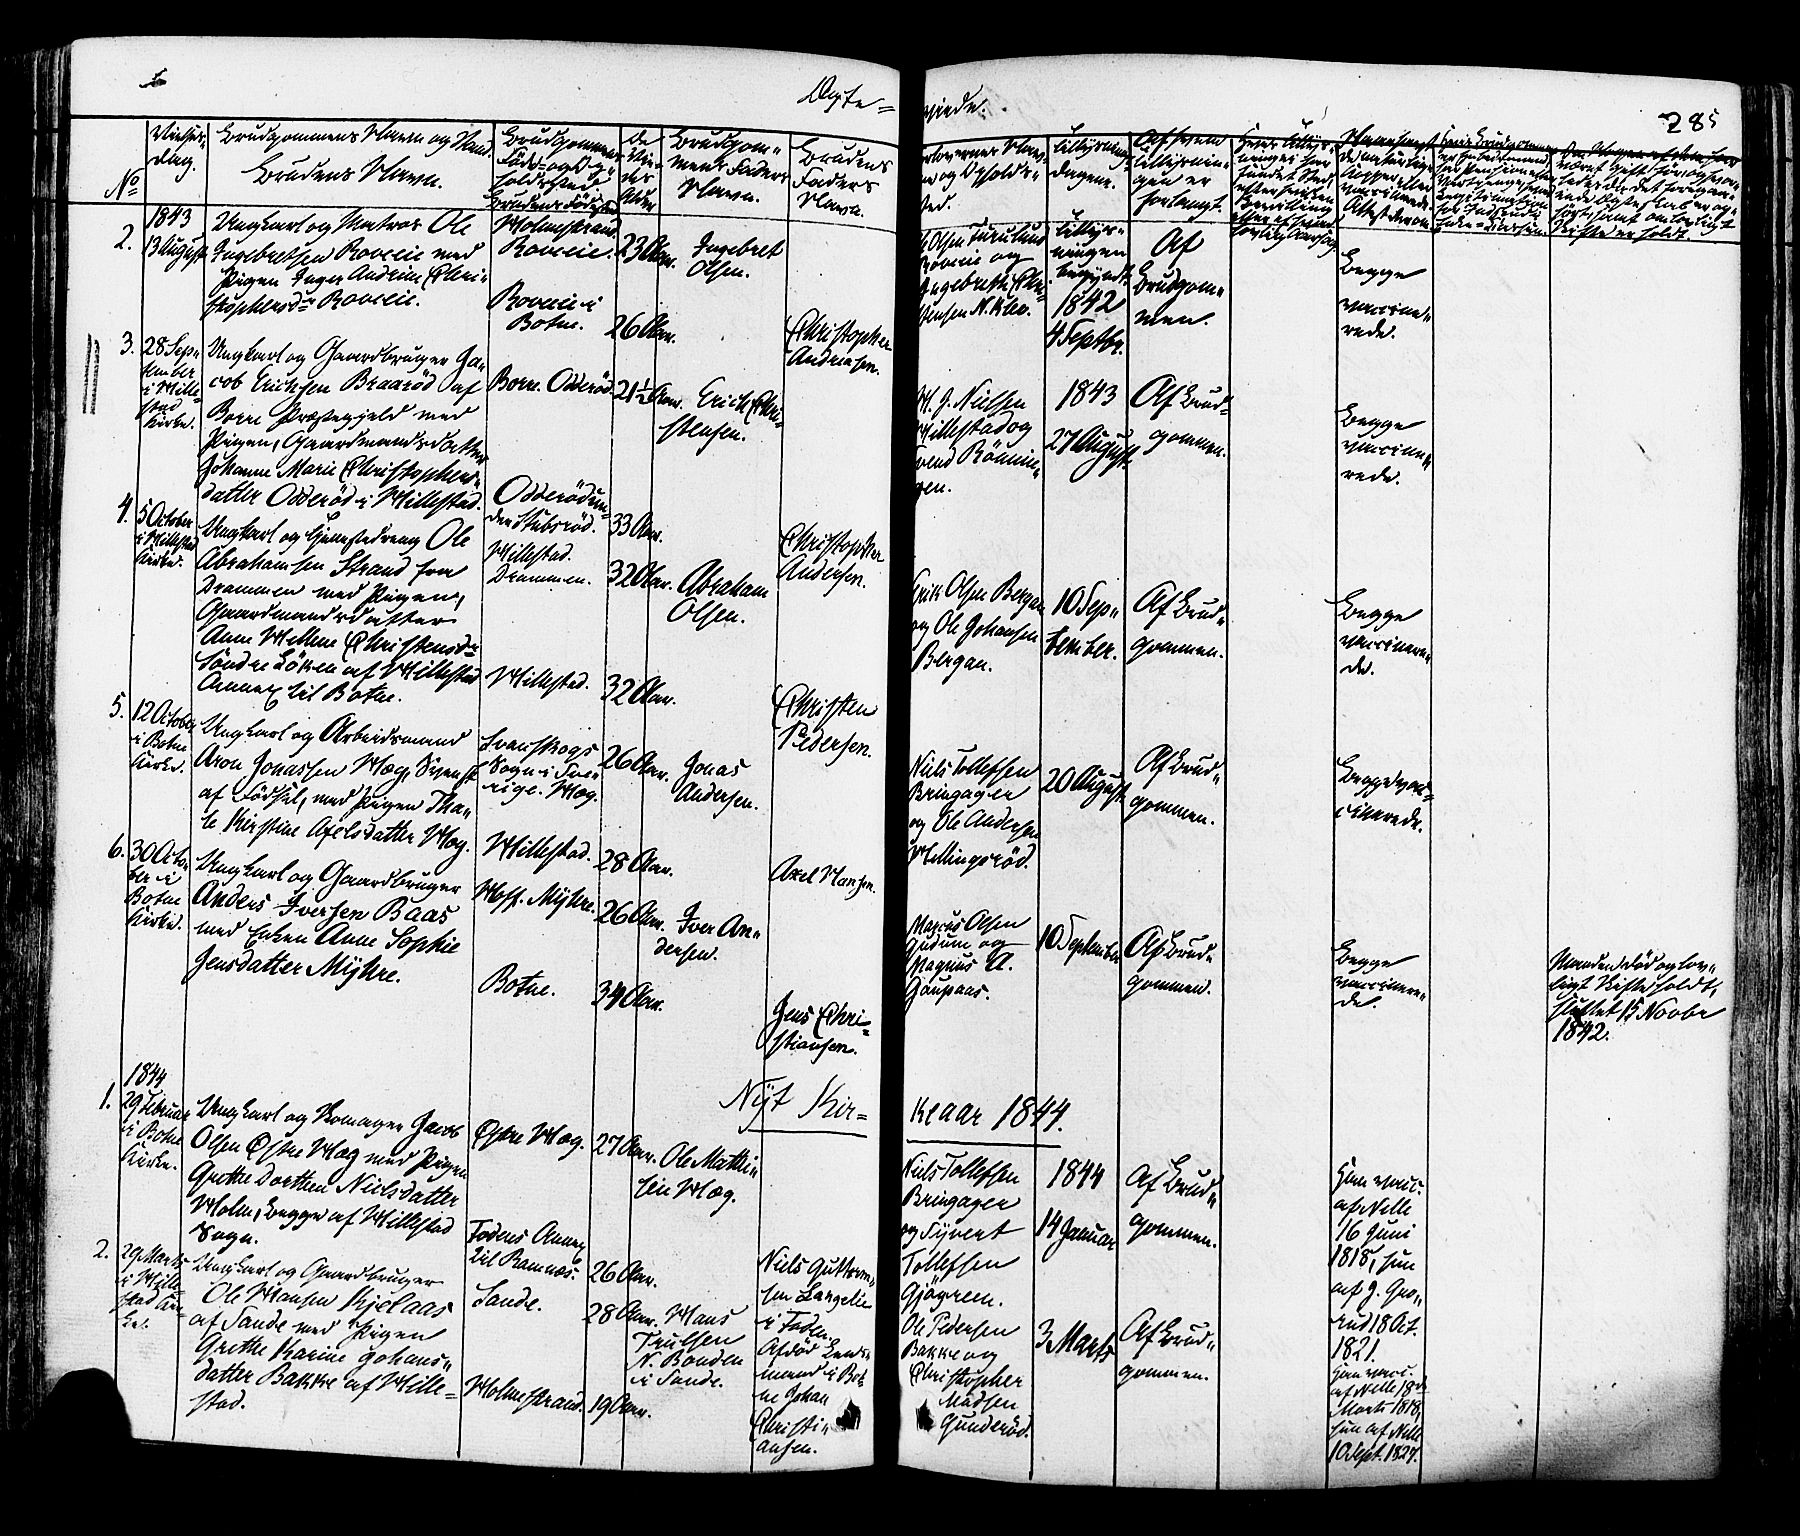 Ægte=
viede.
285
No
Vielses=
dag.
Brudgommens Navn og Stand.
Brudens Navn.
Brudgommens
Føde= og Op=
holdssted
Brudens Fødested
De
Vie=
des
Alder
Brudgom=
mens Faders
Navn.
Brudens
Faders
Navn.
Forlovernes Nav=
ne og Opholds=
sted.
Lysnings
dagene.
Af hvem
Lysnin=
gen er
forlangt.
1843
2.
13 August
Ungkarl og Matros Ole
Ingebretsen Roveie med
Pigen Inger Andrine Chri=
stophersdr Roveie.
Holmestrand
Roveie.
Roveie i
Botne.
23 Aar.
26 Aar.
Ingebret
Olsen.
Christopher
Andersen.
Ole Olsen
Roveie og
Ingebreth Chri=
stensen N. Klev.
begyndt
1842
4 Septbr.
Af
Brudgom=
men.
Begge
vaccine=
rede.
3.
28 Sep=
tember
i Hille=
stad
Kirke.
Ungkarl og Gaardbruger Ja=
cob Ericksen Braarød af
Borre Præstegjeld med
Pigen, Gaardmandsdatter
Johanne Marie Christophers=
datter Odderød i Hillestad.
Borre. Odderød.
Odderød un=
der Kubsrød.
21½ Aar.
33 Aar.
Erick Chri=
stensen.
Christopher
Andersen.
H. J. Nielsen
Hillestad og
Svend Rønnin=
gen.
1843
27 August.
Af Brud=
gommen.
Begge
vaccine=
rede.
4.
5 October
i Hillestad
Kirke.
Ungkarl og Tjenestedreng Ole
Abrahamsen Strand fra
Drammen med Pigen,
Gaardmandsdatter
Anne Helene Christensdr
Søndre Løken af Hillestad
Annex til Botne.
Hillestad.
Drammen.
Hillestad.
32 Aar.
32 Aar.
Abraham
Olsen.
Christen
Pedersen.
Erik Olsen Bergan
og Ole Johansen
Bergan.
10 Sep=
tember.
Af Brud=
gommen.
Begge
vaccinere=
de.
5.
12 October
i Botne
Kirke.
Ungkarl og Arbeidsmand
Aron Jonassen Hæg, Svensk
af Fødsel, med Pigen Tha=
le Kirstine Axelsdatter Hæg.
Svanskogs
Sogn i Sve=
rige. Hæg.
Hillestad.
26 Aar.
28 Aar.
Jonas
Andersen.
Axel Hansen.
Niels Tollefsen
Bringager
og Ole Andersen
Hellingsrød.
20 August.
Af Brud=
gommen.
Begge vac=
cinerede.
6.
30 Octo=
ber i
Botne
Kirke.
Ungkarl og Gaardbruger
Anders Iversen Baas
med Enken Anne Sophie
Jensdatter Myhre.
Hoff. Myhre.
Botne.
26 Aar.
34 Aar.
Iver An=
dersen.
Jens Chri=
stiansen.
Marcus Olsen
Gudum og
Magnus A.
Goupaas.
10 September
Af Brud=
gommen.
Begge
vaccinere=
de.
Manden død og lov=
ligt Skifte holdt,
sluttet 15 Novbr
1842.
Nyt Kir=
keaar 1844.
1844
1.
29 Februar
i Botne
Kirke.
Ungkarl og Skomager Jacob
Olsen Østre Hæg med Pigen
Grethe Dorthea Nielsdatter
Holm, begge af Hillestad
Sogn.
Østre Hæg.
Fodens Annex
til Ramnæs.
27 Aar.
26 Aar.
Ole Mathi=
sen Hæg.
Niels Guttorm=
sen Langelie
i Foden.
Niels Tollefsen
Bringager
og Syvert
Tollefsen
Gjøgreen.
1844
14 Januar
Af Brud=
gommen.
Han vacc.
af Nelle
16 Juni
1818, hun
af J. Gro=
rud 18 Oct.
1821.
2.
29 Marts
i Hille=
stad Kir=
ke.
Ungkarl og Gaardbruger
Ole Hansen Kjelaas
af Sande med Pigen
Grethe Karine Johans=
datter Bakke af Hille=
stad.
Sande.
Holmestrand.
28 Aar.
19 Aar.
Hans
Truelsen
N. Bonden
i Sande.
Afdød Lens=
mand i Bot
ne Johan
Christi=
ansen.
Ole Pedersen
Bakke og
Christopher
Madsen
Gunderød.
3 Marts
Af Brud=
gommen.
Han vacc.
af Nelle 18de
Marts 1818,
hun af Nelle
10 Sept. 1827.